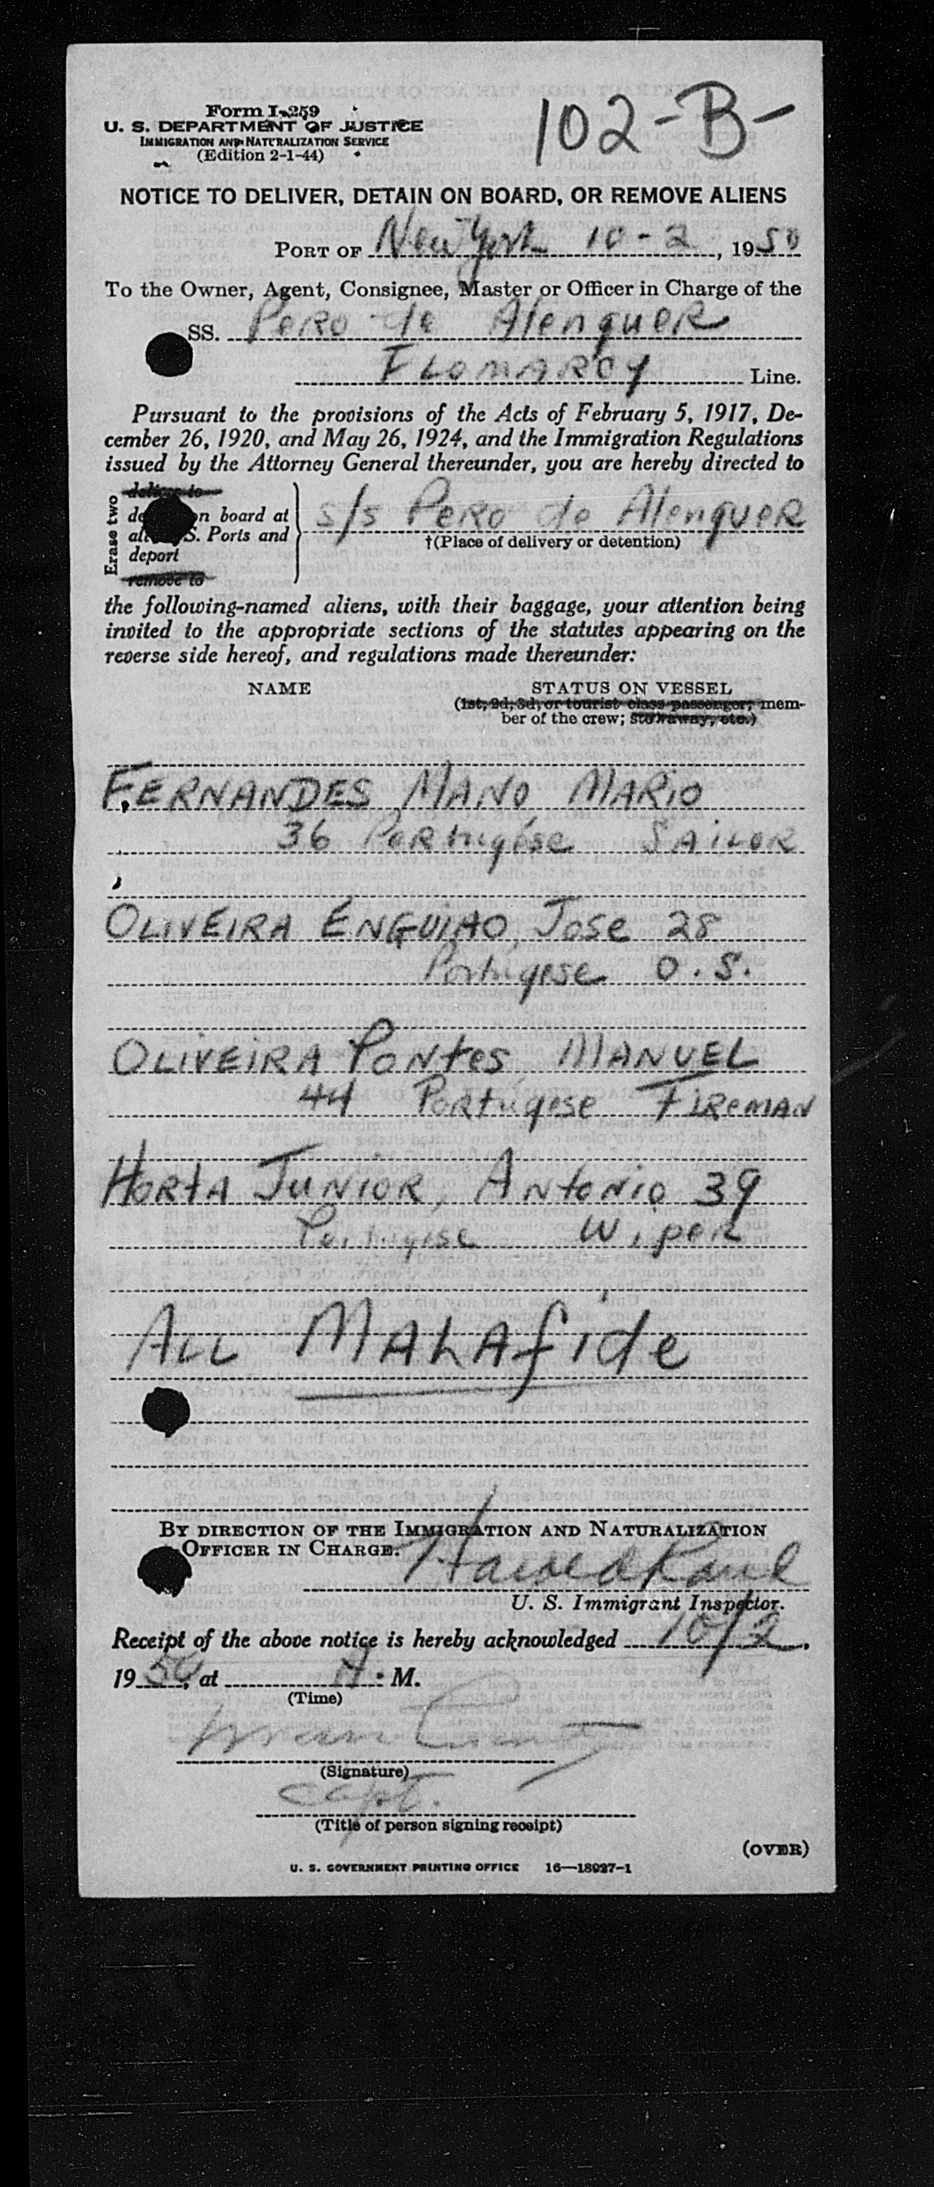 Form I-259
102-B-
U. S. DEPARTMENT OF JUSTICE
IMMIGRATION AND NATURALIZATION SERVICE
(Edition 2-1-44)
NOTICE TO DELIVER, DETAIN ON BOARD, OR REMOVE ALIENS
PORT OF New York 10-2, 1950
To the Owner, Agent, Consignee, Master or Officer in Charge of the
SS. Pero de Alenquer
FLOMARCY Line.
Pursuant to the provisions of the Acts of February 5, 1917, De-
cember 26, 1920, and May 26, 1924, and the Immigration Regulations
issued by the Attorney General thereunder, you are hereby directed to
Erase two
deliver to
on board at
S. Ports and
deport
remove to
s/s Pero de Alenquer
†(Place of delivery or detention)
the following-named aliens, with their baggage, your attention being
invited to the appropriate sections of the statutes appearing on the
reverse side hereof, and regulations made thereunder:
NAME STATUS ON VESSEL
(1st, 2d, 3d, or tourist class passenger; mem-
ber of the crew; stowaway, etc.)
FERNANDES MANO, MARIO
36 Portugese SAILOR
OLIVEIRA ENGUIAO, Jose 28
Portugese O.S.
OLIVEIRA PONtes, MANUEL
44 Portugese FIREMAN
HORtA JUNIOR, ANtoNio 39
Portugese Wiper
ALL MALAfide
BY DIRECTION OF THE IMMIGRATION AND NATURALIZATION
OFFICER IN CHARGE.
Harold
U. S. Immigrant Inspector.
Receipt of the above notice is hereby acknowledged 10/2,
1950, at A. M.
(Time)
(Signature)
Capt.
(Title of person signing receipt)
(OVER)
U. S. GOVERNMENT PRINTING OFFICE 16—18027-1